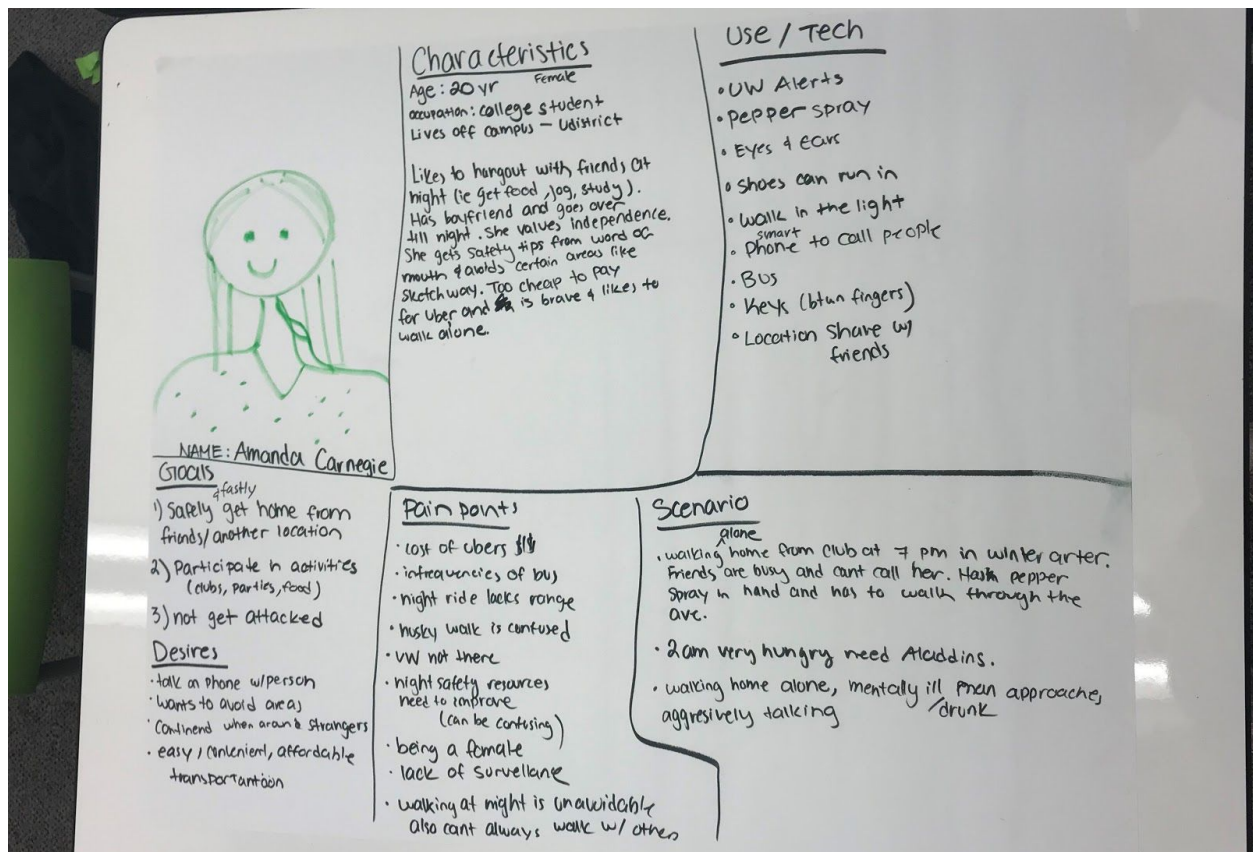 Characteristics
Age: 20 yr Female
occupation: college student
Lives off campus - Udistrict
Likes to hangout with friends at
night (ie get food, jog, study).
Has boyfriend and goes over
till night. She values independence.
She gets safety tips from word of
mouth & avoids certain areas like
sketchway. Too cheap to pay
for Uber and is brave & likes to
walk alone.
Use / Tech
• UW Alerts
• pepper spray
• Eyes & ears
• shoes can run in
• walk in the light
smart
• Phone to call people
• Bus
• Keys (btwn fingers)
• Location Share w/
friends
NAME: Amanda Carnegie
Goals
& fastly
1) Safely get home from
friends/another location
2) Participate in activities
(clubs, parties, food)
3) not get attacked
Desires
• talk on phone w/person
• wants to avoid areas
• when around strangers
• easy, convienient, affordable
transportantion
Pain points
• cost of ubers $$$
• infrequencies of bus
• night ride lacks range
• husky walk is confused
• UW not there
• night safety resources
need to improve
(can be confusing)
• being a female
• lack of survellane
• walking at night is unavoidable
also cant always walk w/ others
Scenario
alone
• walking home from club at 7 pm in winter
Friends are busy and cant call her. Has pepper
spray in hand and has to walk through the
ave.
• 2am very hungry need Aladdins.
• walking home alone, mentally ill man approaches,
/drunk
aggresively talking